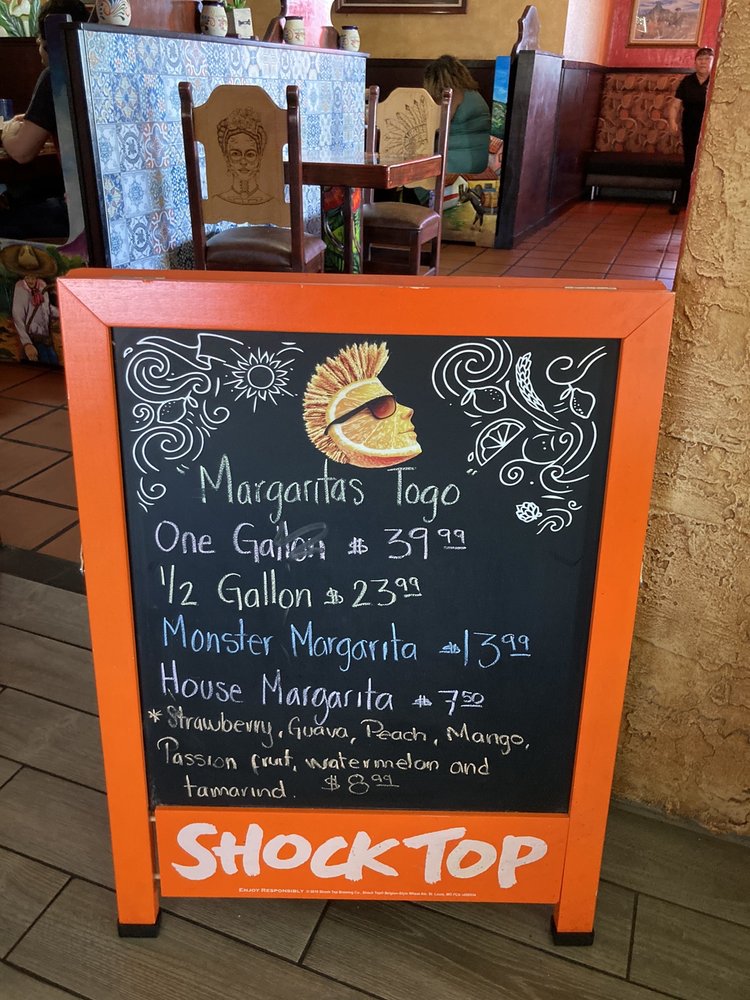 Margaritas Togo
One Gallon $ 39 99
1/2 Gallon $ 23 99
Monster Margarita $ 13 99
House Margarita $ 7 50
* Strawberry, Guava, Peach, Mango,
Passion fruit, watermelon and
tamarind. $ 8 99
SHOCK TOP
ENJOY RESPONSIBLY